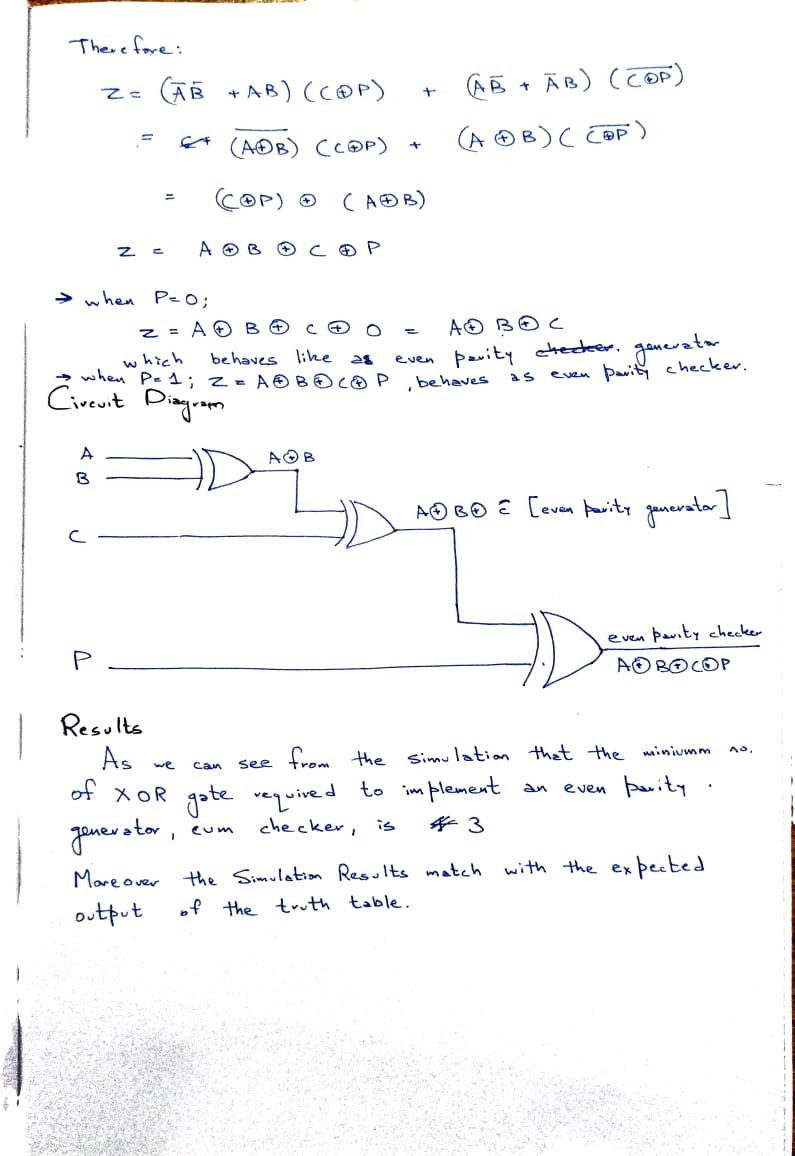 Therefore:
Z = (A̅B̅ + AB) (C⊕P) + (AB̅ + A̅B) (C̅⊕̅P̅)
= (A̅⊕̅B̅) (C⊕P) + (A⊕B) (C̅⊕̅P̅)
= (C⊕P) ⊕ (A⊕B)
Z = A ⊕ B ⊕ C ⊕ P
→ when P=0;
Z = A ⊕ B ⊕ C ⊕ 0 = A⊕ B⊕ C
which behaves like as even parity checker. generator
→ when P=1; Z = A⊕B⊕C⊕P, behaves as even parity checker.
Circuit Diagram
A
B
A⊕B
A⊕B⊕ C̅ [even parity generator]
C
even parity checker
P
A⊕B⊕C⊕P
Results
As we can see from the simulation that the miniumm no.
of XOR gate required to implement an even parity.
generator, cum checker, is 3
Moreover the Simulation Results match with the expected
output of the truth table.